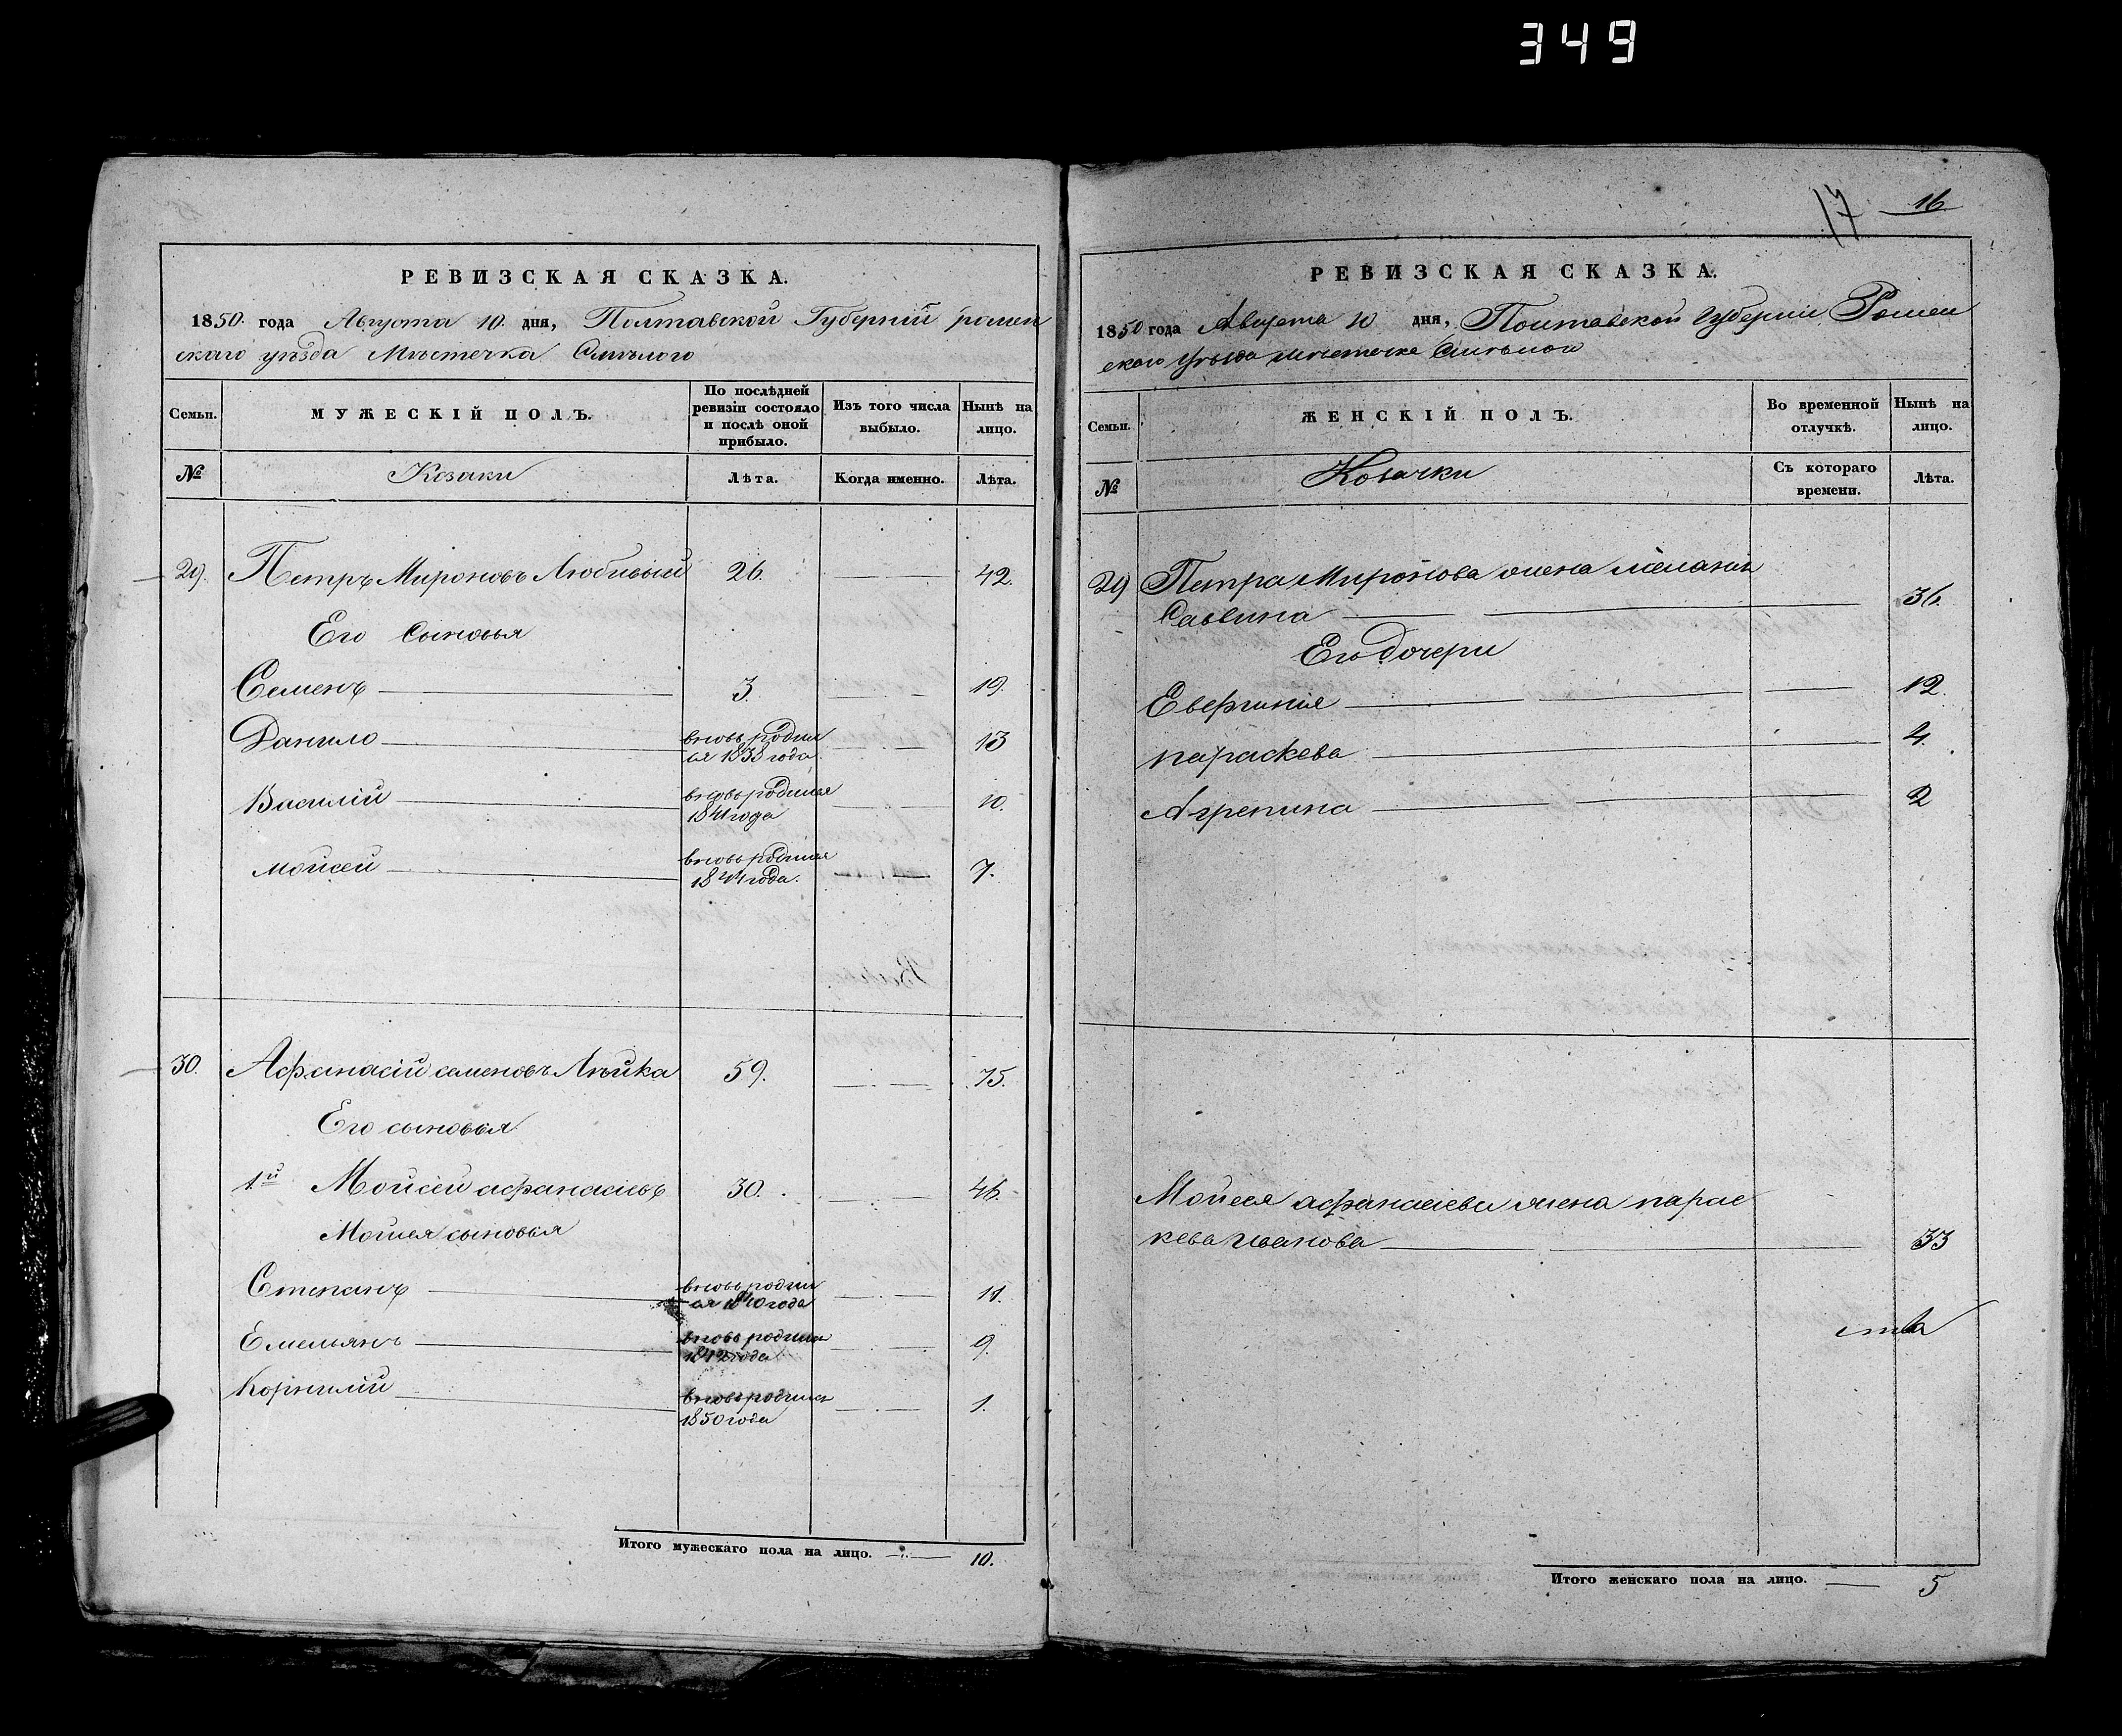 349
РЕВИЗСКАЯ СКАЗКА.
1850. года Августа 10. дня, Полтавской Губерній ромен
скаго уѣзда Мѣстечка Смѣлого
Семьи.
МУЖЕСКІЙ ПОЛЪ.
По послѣдней ревизіи состояло и послѣ оной прибыло.
Изъ того числа выбыло.
Нынѣ на лицо.
№
Козаки
Лѣта.
Когда именно.
Лѣта.
29. Петръ Мироновъ Любивый 26. 42.
Его Сыновья
Семенъ 3. 19.
Данило вновь родил
ся 1838 года. 13
Василій вновь родился
1841 года 10.
Мойсей вновь родился
1844 года. 7.
30. Афанасій семеновъ Лѣйка 59. 75.
Его сыновья
1й Мойсей афанасіевъ 30. 46.
Мойсея сыновья
Степанъ вновь родил
ся 1840 года 11.
Емельянъ вновь родился
1842 года 9.
Корнилій вновь родился
1850 года 1.
Итого мужескаго пола на лицо. 10.
17 16
РЕВИЗСКАЯ СКАЗКА.
1850 года Августа 10 дня, Полтавской Губерніи Ромен
скаго Уѣзда мѣстечка Смѣлого
Семьи.
ЖЕНСКІЙ ПОЛЪ.
Во временной отлучкѣ.
Нынѣ на лицо.
№
Козачки
Съ котораго времени.
Лѣта.
29 Петра Миронова жена Меланія
Саввина 36.
Его дочери
Евгинія 12.
параскева 4.
Агрепина 2
Мойсея афанасіева жена парас
кева Иванова 33
Итого женскаго пола на лицо. 5